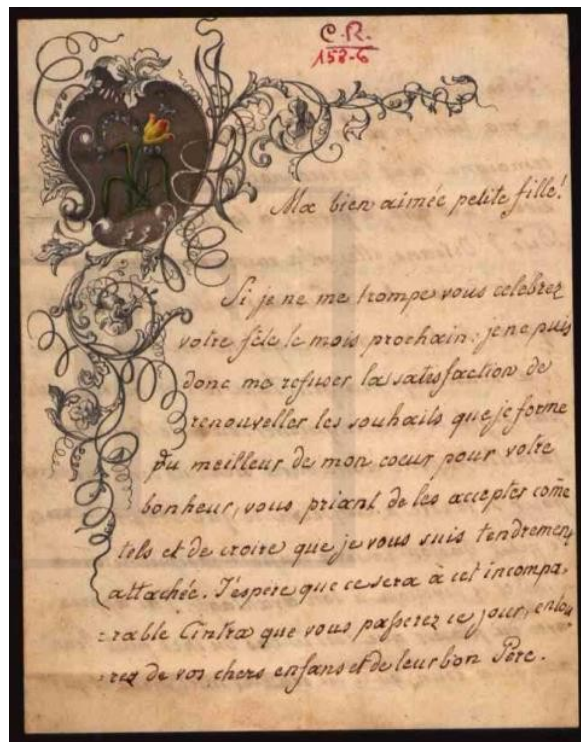 C.R.
158-6
Ma bien aimée petite fille!
Si je ne me trompe vous celebrez
votre fête le mois prochain: je ne puis
donc me refuser la satisfaction de
renouveller les souhaits que je forme
du meilleur de mon coeur pour votre
bonheur, vous priant de les accepter come
tels et de croire que je vous suis tendremen,
attachée. J'espere que ce sera à cet incompa,
:rable Cintra que vous passerez ce jour, entou
:rez de vos chers enfans et de leur bon Père.